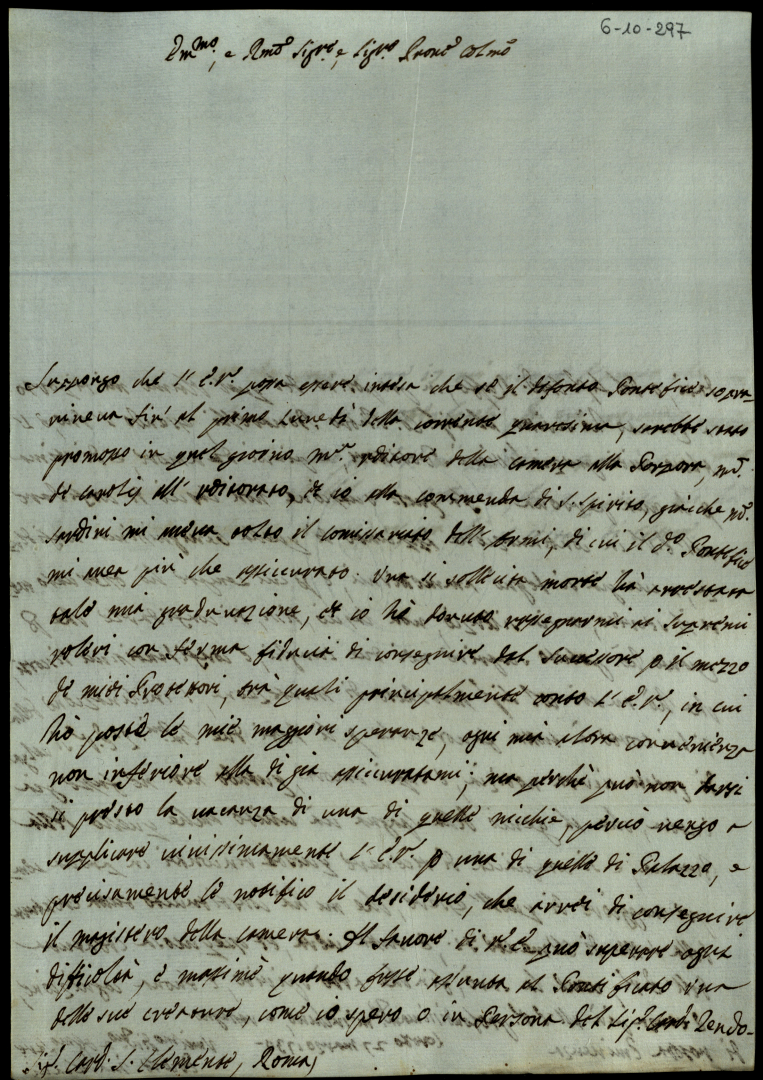 6-10-297
Em.mo, e Rmo Sigre, e Sigre Prone Colmo
Suppongo che l'E.V. possa essere intesa che se il defonto Pontefice sopra-
viveva fin' al primo lunedì della corrente quaresima, sarebbe stato
promosso in quel giorno Mr. Uditore della Camera alla Porpora, M.
de Carolis all' Uditorato, et io alla commenda di S. Spirito, giache M.
Sardini mi aveva tolto il comissariato dell'Armi, di cui il do. Pontefice
mi avea più che assicurato. Una si sollecita morte hà arrestata
tale mia graduazione, et io hò dovuto rassegnarmi ai supremi
voleri con ferma fiducia di conseguire dal successore p il mezzo
de miei Protettori, trà quali principalmente conto l'E.V., in cui
hò poste le mie maggiori speranze, ogni mia altra convenienza
non inferiore alla di già assicuratami; ma perchè può non darsi
si presto la vacanza di una di quelle nicchie, perciò vengo a
supplicare vivissimamente l'E.V. p una di quelle di Palazzo, e
precisamente le notifico il desiderio, che avrei di conseguire
il magistero della camera. Il favore di V.E. può superare ogni
difficoltà, e massime quando fosse assunta al Pontificato una
delle sue creature, come io spero o in Persona del Sigr. Cardl Rendo-
Sigr. Card. S. Clemente, Roma